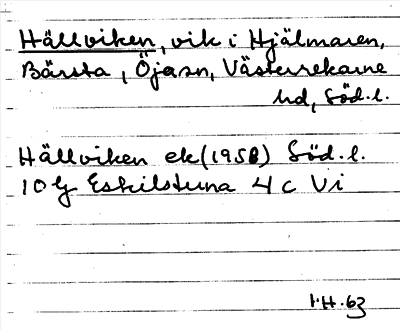 Hällviken, vik i Hjälmaren,
Bärsta, Öja sn, Västerrekarne
hd, Söd. l.
Hällviken ek (1958) Söd. l.
10 G Eskilstuna 4 c Vi
I.H. 63